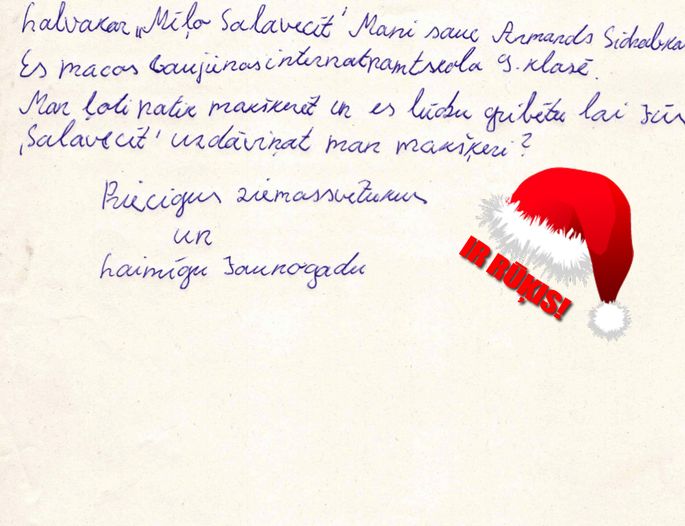 Labvakar „Mīļo Salavecīt' Mani sauc Armands Sidrabka
Es mācos Gaujienas internātpamtskola 9. klasē.
Man ļoti patik makšķerēt un es lūdzu gribētu lai Jūs
'Salavecīt' uzdāviņat man makšķeri?
Priecīgus ziemassvētkus
un
Laimīgu Jaunogadu
IR RŪĶIS!